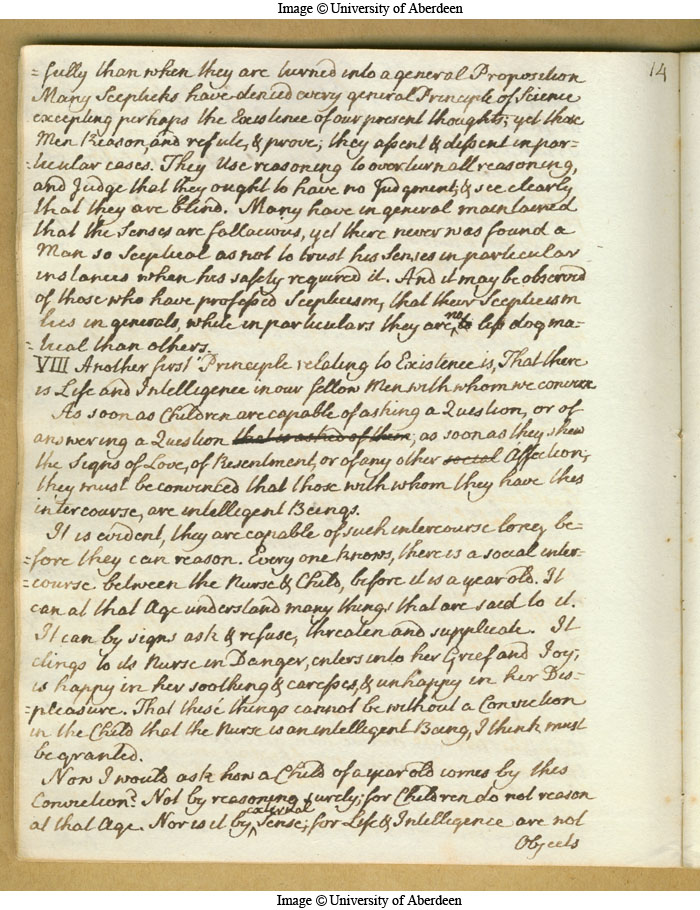 Image © University of Aberdeen
14
=fully than when they are turned into a general Proposition
Many Scepticks have denied every general Principle of Science
excepting perhaps the Existence of our present thoughts; yet those
Men Reason, and refute, & prove; they assent & dissent in par-
-ticular cases. They Use reasoning to overturn all reasoning,
and Judge that they ought to have no Judgment, & see clearly
that they are blind. Many have in general maintained
that the Senses are fallacious, yet there never was found a
Man so Sceptical as not to trust his Senses in particular
instances when his safety required it. And it may be observed
of those who have professed Scepticism, that their Scepticism
lies in generals, while in particulars they are no less dogma-
-tical than others.
VIII Another first Principle relating to Existence is, That there
is Life and Intelligence in our fellow Men with whom we converse
As soon as Children are capable of asking a Question, or of
answering a Question that is asked of them, as soon as they shew
the Signs of Love, of Resentment, or of any other social Affection;
they must be convinced that those with whom they have this
intercourse, are intelligent Beings.
It is evident, they are capable of such intercourse long be-
=fore they can reason. Every one knows, there is a social inter-
=course between the Nurse & Child, before it is a year old. It
can at that Age understand many things that are said to it.
It can by signs ask & refuse, threaten and supplicate. It
clings to its Nurse in Danger, enters into her Grief and Joy,
is happy in her soothing & caresses, & unhappy in her Dis-
=pleasure. That these things cannot be without a Conviction
in the Child that the Nurse is an intelligent Being, I think must
be granted.
Now I would ask how a Child of a year old comes by this
Conviction? Not by reasoning surely; for Children do not reason
at that Age. Nor is it by external Sense; for Life & Intelligence are not
Objects
Image © University of Aberdeen